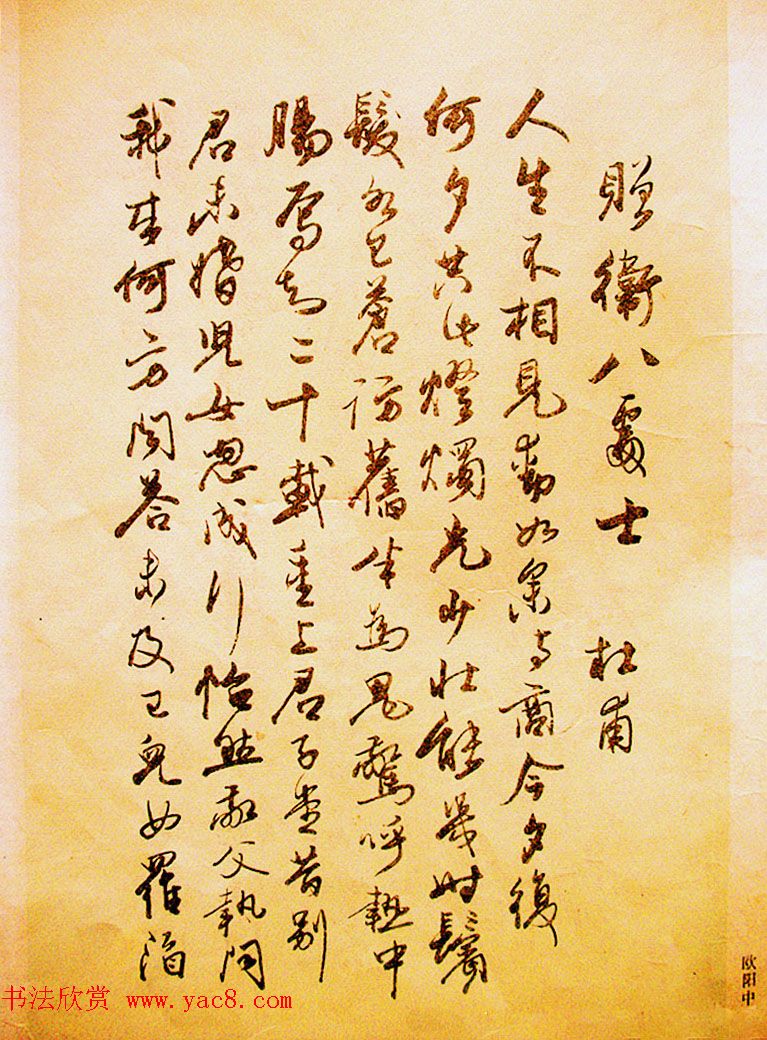 贈衛八處士 杜甫
人生不相見動如參与商今夕復
何夕共此燈燭光少壯能幾時鬢
髮各已蒼訪舊半為鬼驚呼熱中
腸焉知二十載重上君子堂昔別
君未婚児女忽成行怡然敬父執問
我來何方問答未及已兒女羅酒
欧阳中
书法欣赏 www.yac8.com